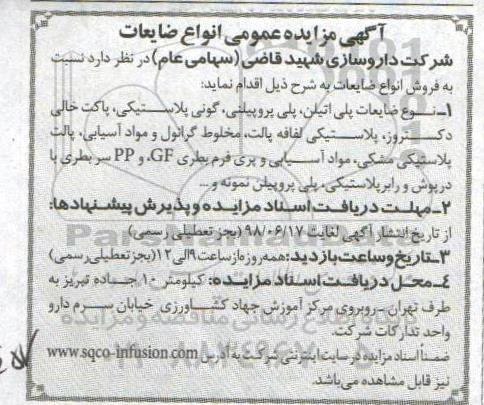 آگهی مزایده عمومی انواع ضایعات
شرکت داروسازی شهید قاضی (سهامی عام) در نظر دارد نسبت
به فروش انواع ضایعات به شرح ذیل اقدام نماید:
۱-نوع ضایعات پلی اتیلن، پلی پروپیلنی، گونی پلاستیکی، پاکت خالی
دکستروز، پلاستیکی لفافه پالت، مخلوط گرانول و مواد آسیابی، پالت
پلاستیکی مشکی، مواد آسیابی و پری فرم بطری GF، و PP سر بطری با
درپوش و رابر پلاستیکی، پلی پروپیلن نمونه و...
۲-مهلت دریافت اسناد مزایده و پذیرش پیشنهادها:
از تاریخ انتشار آگهی لغایت ۹۸/۰۶/۱۷ (بجز تعطیلی رسمی)
۳-تاریخ وساعت بازدید: همه روزه از ساعت ۹ الی ۱۲ (بجز تعطیلی رسمی)
۴-محل دریافت اسناد مزایده: کیلومتر ۱۰ جاده تبریز به
طرف تهران - روبروی مرکز آموزش جهاد کشاورزی خیابان سرم دارو
واحد تدارکات شرکت.
ضمناً اسناد مزایده در سایت اینترنتی شرکت به آدرس www.sqco-infusion.com
نیز قابل مشاهده می‌باشد.